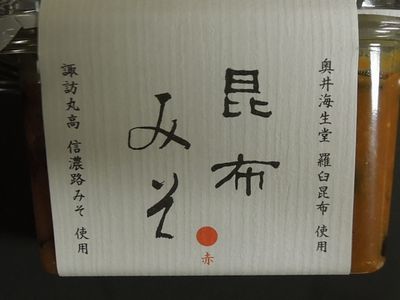 奥井海生堂 羅臼昆布 使用
昆布
みそ
赤
諏訪丸高 信濃路みそ 使用